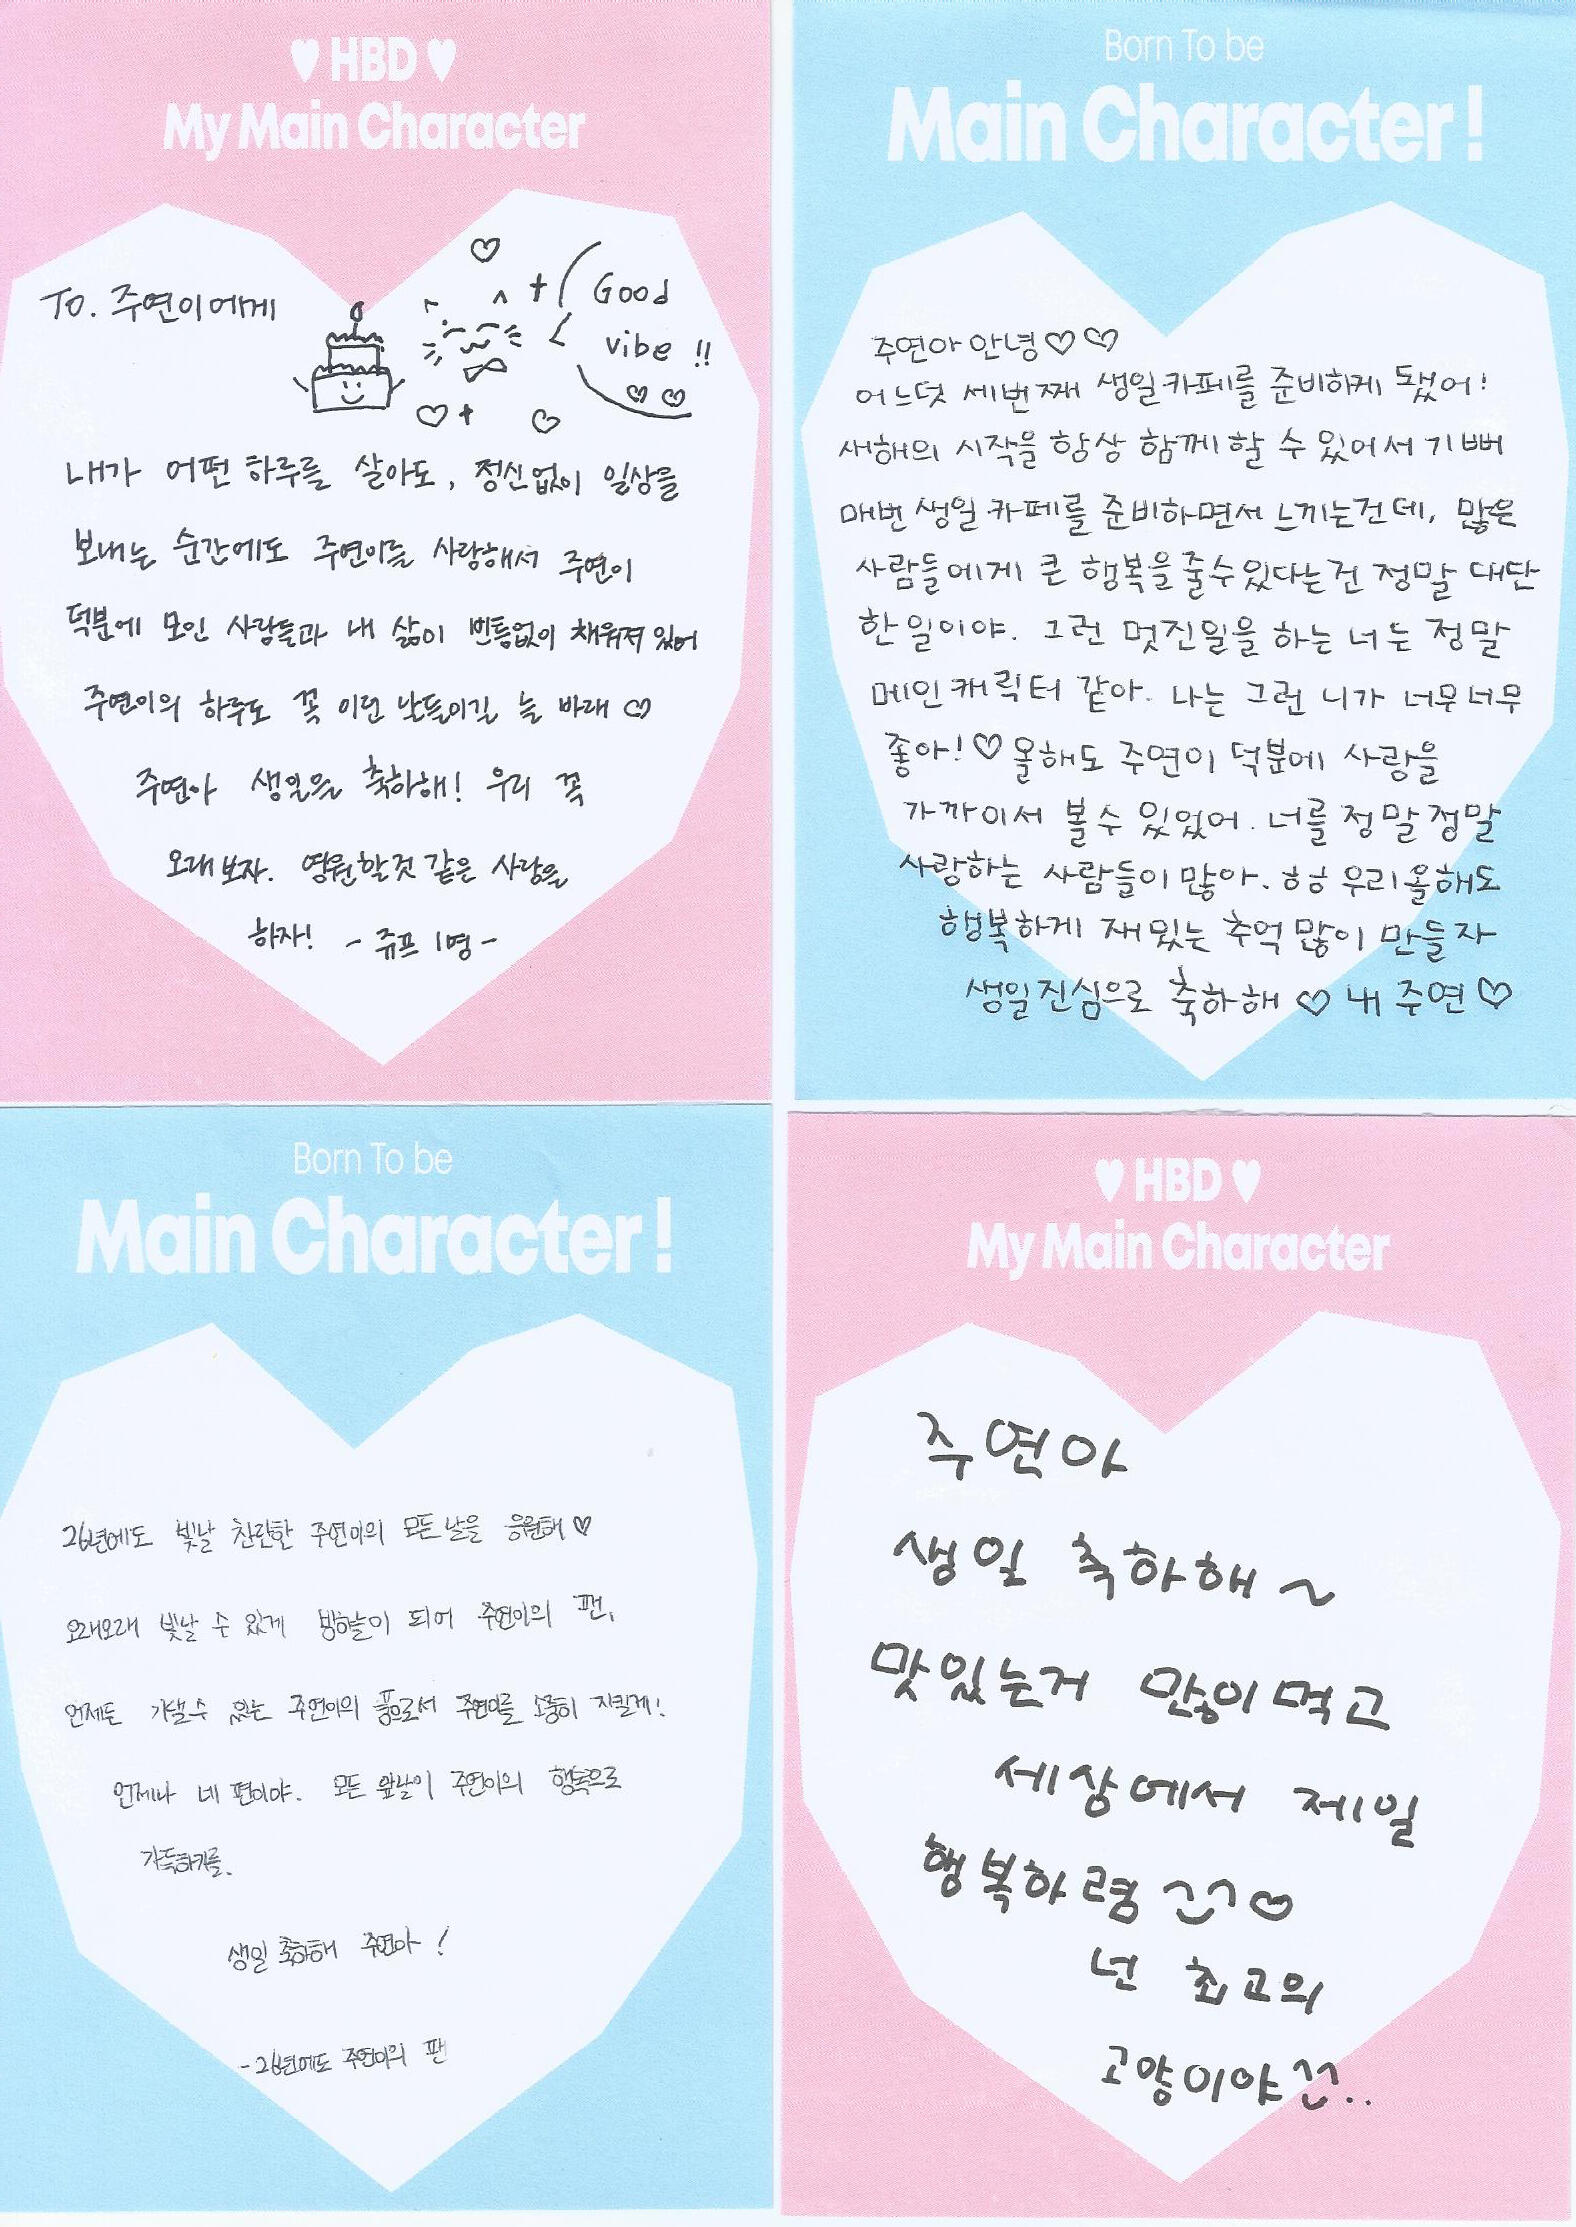 ♥ HBD ♥
My Main Character
To. 주연이에게
Good
vibe !!
내가 어떤 하루를 살아도, 정신없이 일상을
보내는 순간에도 주연이를 사랑해서 주연이
덕분에 모인 사람들과 내 삶이 빈틈없이 채워져 있어
주연이의 하루도 꼭 이런 날들이길 늘 바래 ♡
주연아 생일을 축하해! 우리 꼭
오래보자. 영원할것 같은 사랑을
하자! - 쥬프 1명 -
Born To be
Main Character!
주연아 안녕♡♡
어느덧 세번째 생일카페를 준비하게 됐어!
새해의 시작을 항상 함께 할 수 있어서 기뻐
매번 생일 카페를 준비하면서 느끼는건데, 많은
사람들에게 큰 행복을 줄수있다는건 정말 대단
한 일이야. 그런 멋진일을 하는 너는 정말
메인캐릭터 같아. 나는 그런 니가 너무너무
좋아!♡ 올해도 주연이 덕분에 사랑을
가까이서 볼수 있었어. 너를 정말정말
사랑하는 사람들이 많아. ㅎㅎ 우리올해도
행복하게 재밌는 추억 많이 만들자
생일진심으로 축하해 ♡ 내 주연♡
Born To be
Main Character!
26년에도 빛날 찬란한 주연이의 모든 날을 응원해♡
오래오래 빛날 수 있게 밤하늘이 되어 주연이의 팬,
언제든 기댈 수 있는 주연이의 품으로서 주연이를 소중히 지킬게!
언제나 네 편이야. 모든 앞날이 주연이의 행복으로
가득하기를.
생일 축하해 주연아!
- 26년에도 주연이의 팬
♥ HBD ♥
My Main Character
주연아
생일 축하해 ~
맛있는거 많이먹고
세상에서 제일
행복하렴 ^^♡
넌 최고의
고양이야 ^^..